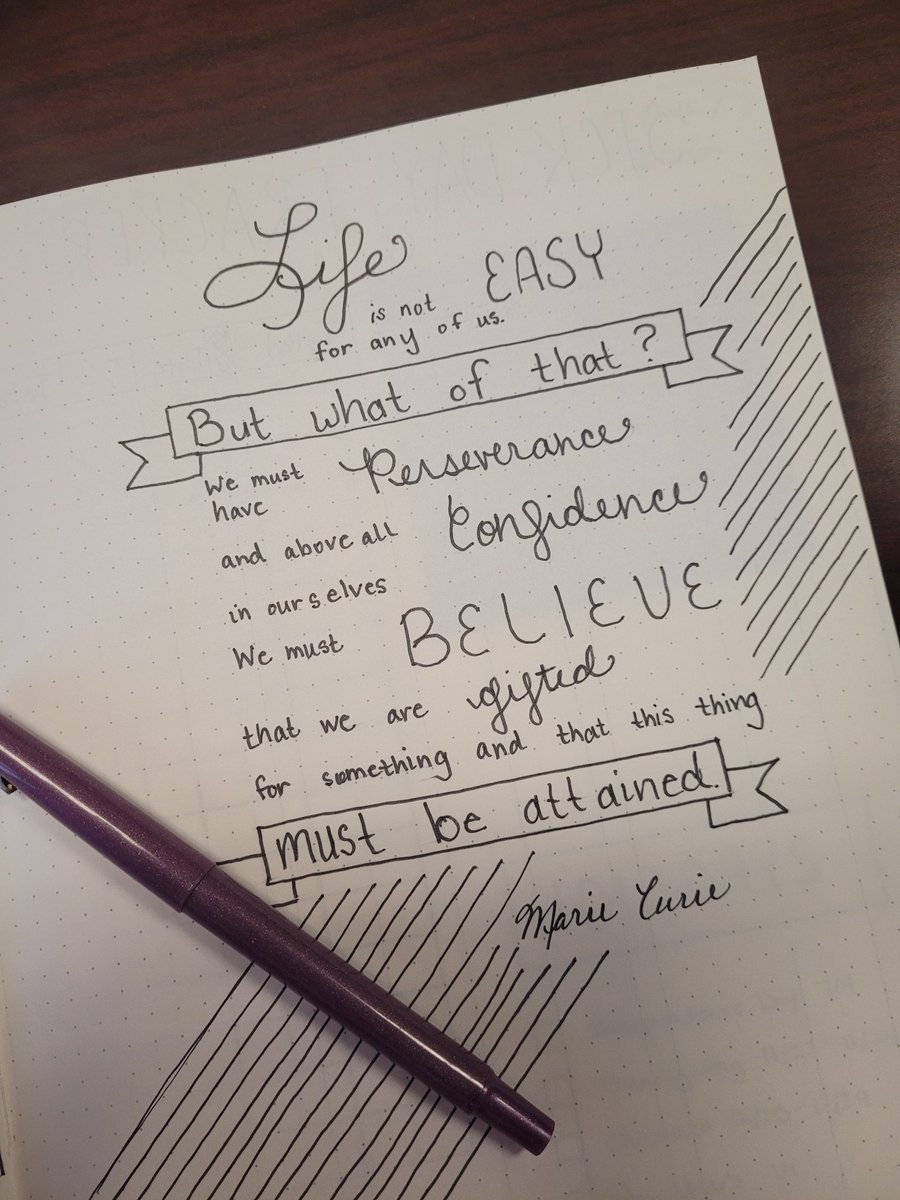 Life is not EASY
for any of us.
But what of that?
We must have Perseverance
and above all Confidence
in ourselves
We must BELIEVE
that we are gifted
for something and that this thing
must be attained.
Marie Curie
SICK DAY TRACKER